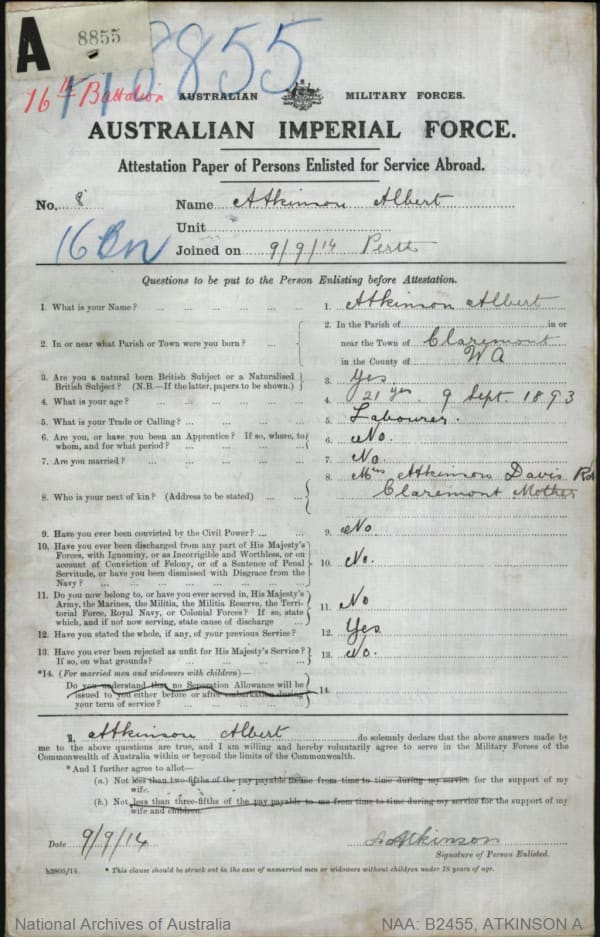 A 8855
18855
16th Battalion
AUSTRALIAN MILITARY FORCES.
AUSTRALIAN IMPERIAL FORCE.
Attestation Paper of Persons Enlisted for Service Abroad.
No. 8 Name Atkinson Albert
Unit
16 Bn Joined on 9/9/14 Perth
Questions to be put to the Person Enlisting before Attestation.
1. What is your Name? ... ... ... ... 1. Atkinson Albert
2. In or near what Parish or Town were you born? ... 2. In the Parish of in or
near the Town of Claremont
in the County of WA
3. Are you a natural born British Subject or a Naturalised
British Subject? (N.B.—If the latter, papers to be shown.) 3. Yes
4. What is your age? ... ... ... ... 4. 21 yrs. 9 Sept. 1893
5. What is your Trade or Calling? ... ... ... 5. Labourer.
6. Are you, or have you been an Apprentice? If so, where, to
whom, and for what period? ... ... ... 6. No.
7. Are you married? ... ... ... ... 7. No.
8. Who is your next of kin? (Address to be stated) ... ... 8. Mrs Atkinson Davis Rd
Claremont Mother
9. Have you ever been convicted by the Civil Power? ... ... 9. No
10. Have you ever been discharged from any part of His Majesty's
Forces, with Ignominy, or as Incorrigible and Worthless, or on
account of Conviction of Felony, or of a Sentence of Penal
Servitude, or have you been dismissed with Disgrace from the
Navy? ... ... ... ... ... 10. No.
11. Do you now belong to, or have you ever served in, His Majesty's
Army, the Marines, the Militia, the Militia Reserve, the Terri-
torial Force, Royal Navy, or Colonial Forces? If so, state
which, and if not now serving, state cause of discharge ... 11. No
12. Have you stated the whole, if any, of your previous Service? 12. Yes
13. Have you ever been rejected as unfit for His Majesty's Service?
If so, on what grounds? ... ... ... ... 13. No.
*14. (For married men and widowers with children)—
Do you understand that no Separation Allowance will be
issued to you either before or after embarkation during
your term of service? ... ... ... 14.
I, Atkinson Albert do solemnly declare that the above answers made by
me to the above questions are true, and I am willing and hereby voluntarily agree to serve in the Military Forces of the
Commonwealth of Australia within or beyond the limits of the Commonwealth.
* And I further agree to allot—
(a.) Not less than two-fifths of the pay payable to me from time to time during my service for the support of my
wife.
(b.) Not less than three-fifths of the pay payable to me from time to time during my service for the support of my
wife and children.
Date 9/9/14 A Atkinson
Signature of Person Enlisted.
b3805/14. * This clause should be struck out in the case of unmarried men or widowers without children under 18 years of age.
National Archives of Australia NAA: B2455, ATKINSON A